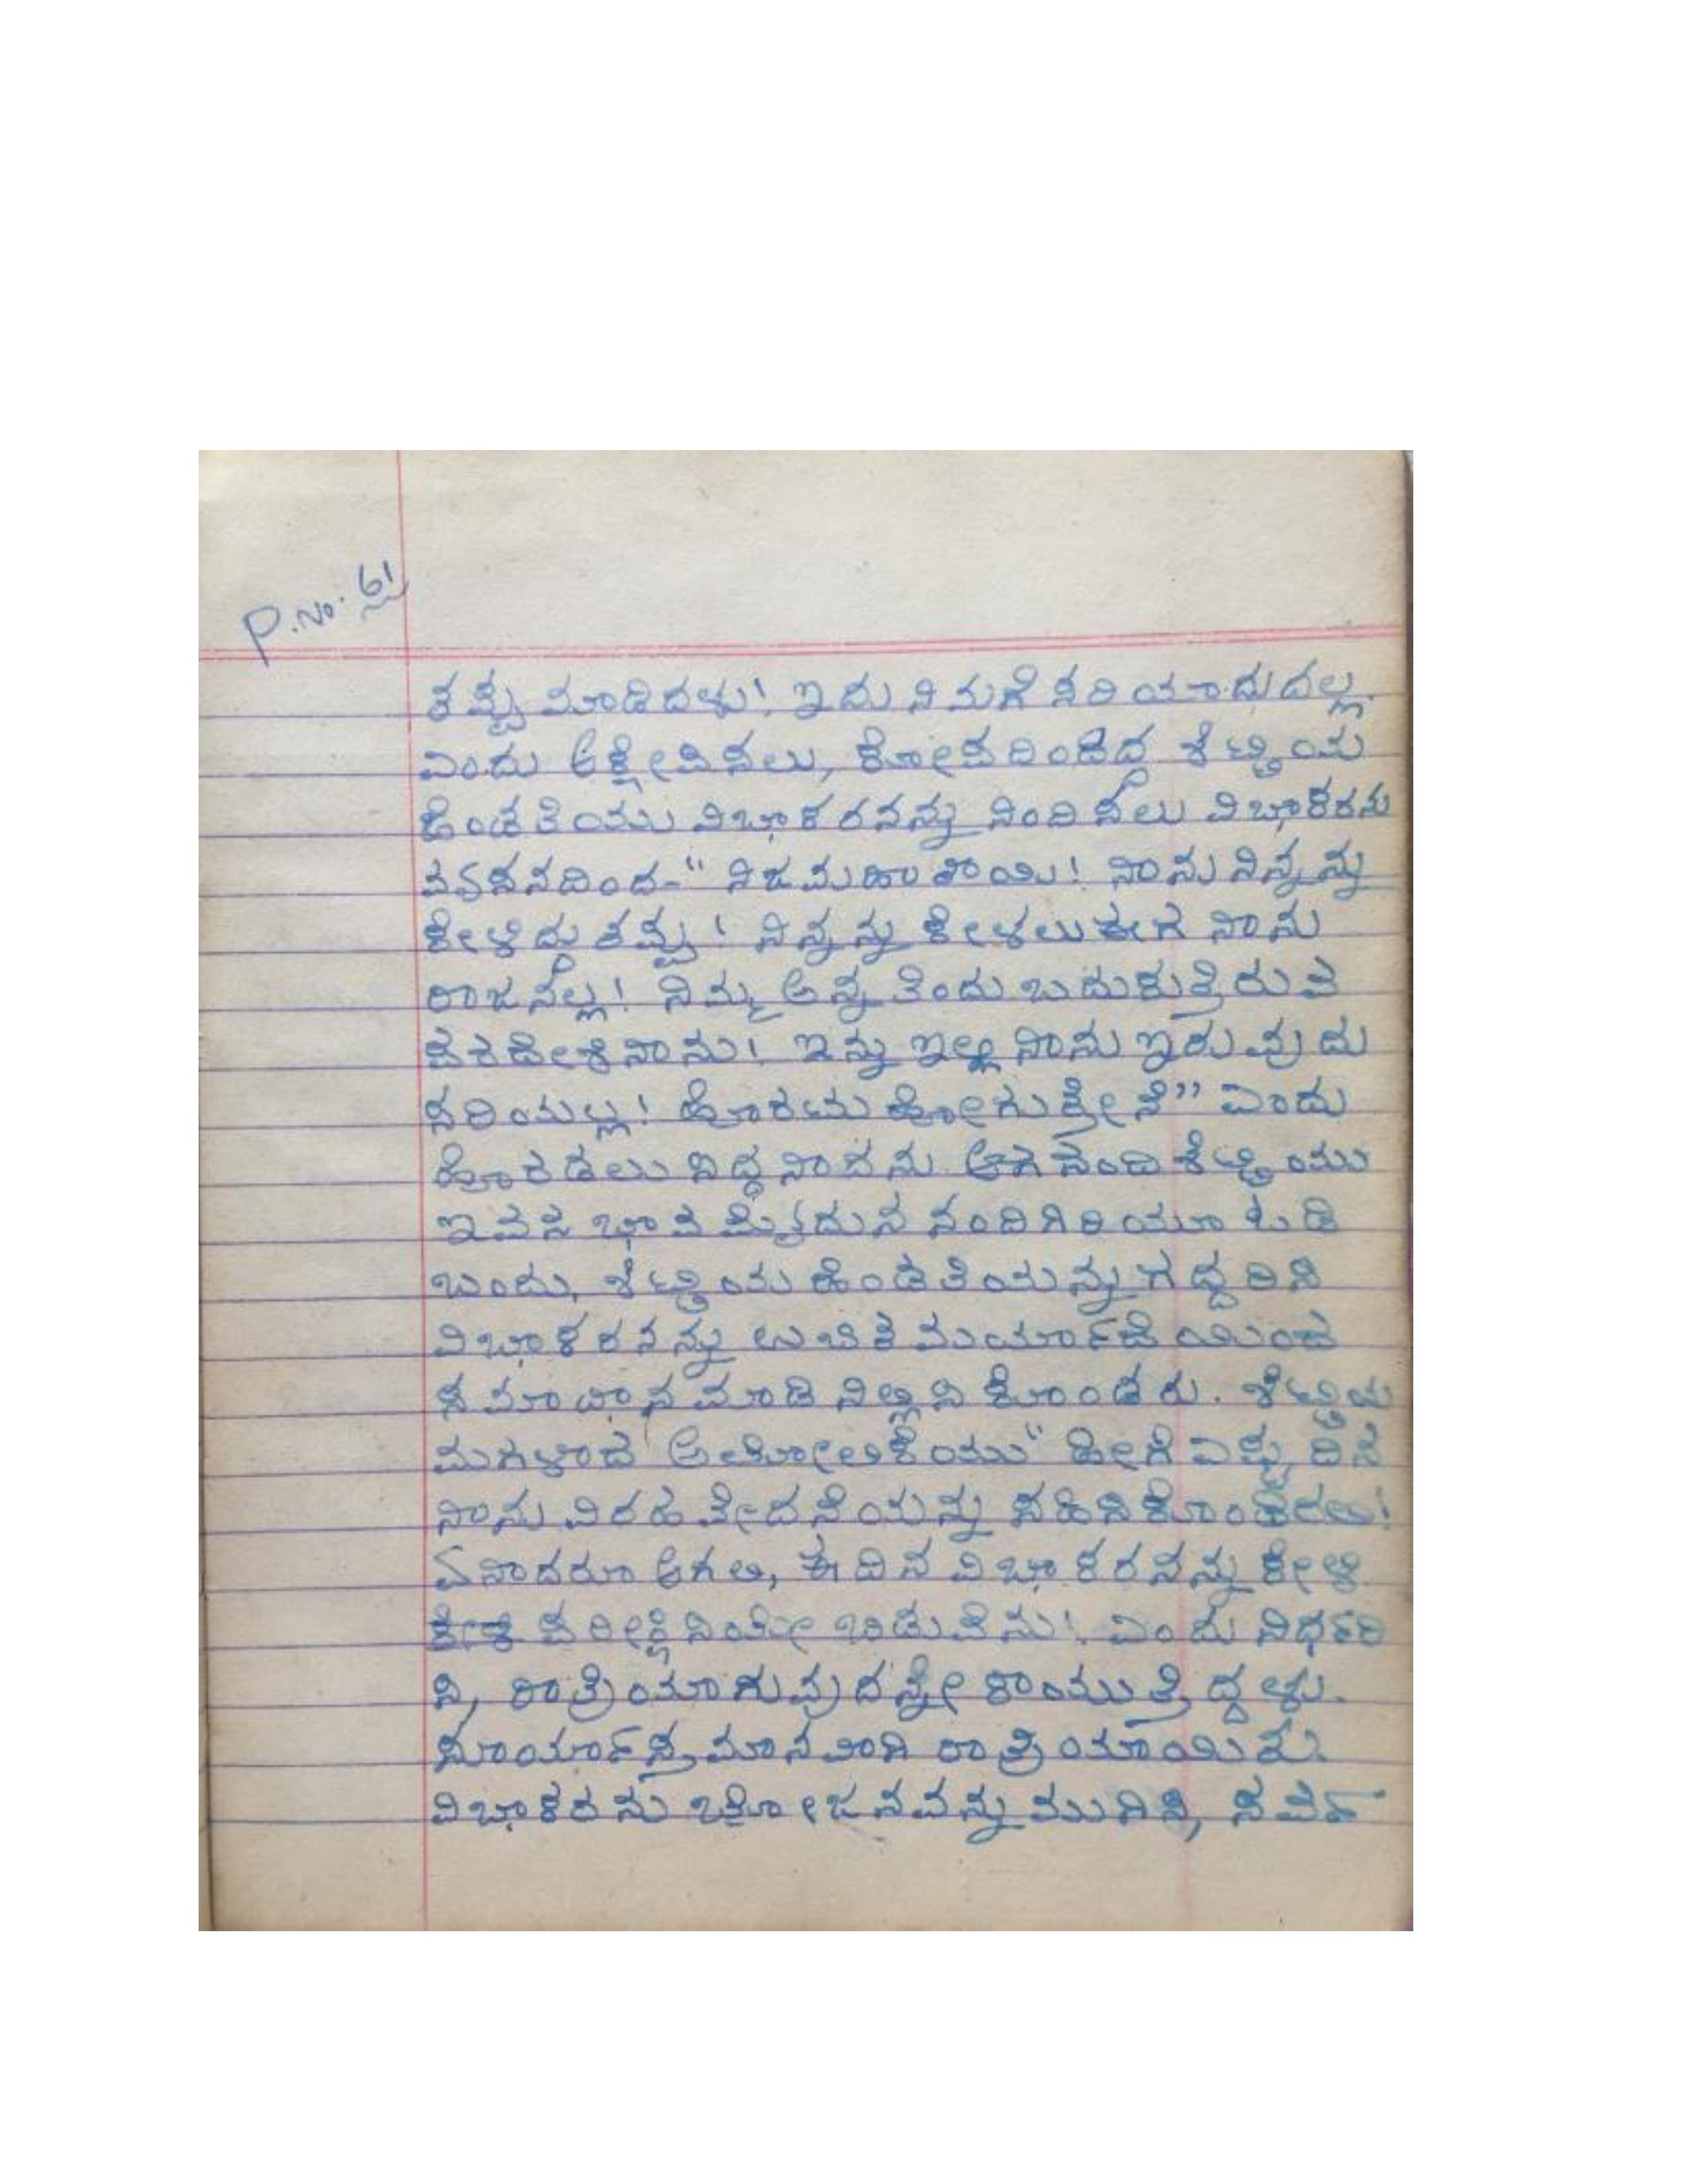 P.No. 61
ತಪ್ಪು ಮಾಡಿದಳು! ಇದು ನಿಮಗೆ ಸರಿಯಾದುದಲ್ಲ.
ಎಂದು ಆಕ್ಷೇಪಿಸಲು, ಕೋಪದಿಂದಿದ್ದ ಶೆಟ್ಟಿಯ
ಹೆಂಡತಿಯು ವಿಭಾಕರನನ್ನು ನಿಂದಿಸಲು ವಿಭಾಕರನು
ವ್ಯಸನದಿಂದ-" ನಿಜ ಮಹಾತಾಯಿ! ನಾನು ನಿನ್ನನ್ನು
ಕೇಳಿದ್ದು ತಪ್ಪು! ನಿನ್ನನ್ನು ಕೇಳಲು ಈಗ ನಾನು
ರಾಜನಲ್ಲ! ನಿಮ್ಮ ಅನ್ನ ತಿಂದು ಬದುಕುತ್ತಿರುವ
ಪರದೇಶಿ ನಾನು! ಇನ್ನು ಇಲ್ಲಿ ನಾನು ಇರುವುದು
ಸರಿಯಲ್ಲ! ಹೊರಟು ಹೋಗುತ್ತೇನೆ" ಎಂದು
ಹೊರಡಲು ಸಿದ್ಧನಾದನು. ಆಗ ನಂದಿಶೆಟ್ಟಿಯು
ಇವನ ಭಾವಮೈದುನ ನಂದಿಗಿರಿಯೂ ಓಡಿ
ಬಂದು, ಶೆಟ್ಟಿಯ ಹೆಂಡತಿಯನ್ನು ಗದ್ದರಿಸಿ
ವಿಭಾಕರನನ್ನು ಉಚಿತ ಮರ್ಯಾದೆಯಿಂದ
ಸಮಾಧಾನ ಮಾಡಿ ನಿಲ್ಲಿಸಿಕೊಂಡರು. ಶೆಟ್ಟಿಯ
ಮಗಳಾದ ಆಲೋಲಿಕೆಯು" ಹೀಗೆ ಎಷ್ಟು ದಿನ
ನಾನು ವಿರಹವೇದನೆಯನ್ನು ಸಹಿಸಿಕೊಂಡಿರಲಿ!
ಏನಾದರೂ ಆಗಲಿ, ಈ ದಿನ ವಿಭಾಕರನನ್ನು ಕೇಳಿ
ಪರೀಕ್ಷಿಸಿಯೇ ಬಿಡುವೆನು! ಎಂದು ನಿರ್ಧರಿ
ಸಿ, ರಾತ್ರಿಯಾಗುವುದನ್ನೇ ಕಾಯುತ್ತಿದ್ದಳು.
ಸೂರ್ಯಾಸ್ತಮಾನವಾಗಿ ರಾತ್ರಿಯಾಯಿತು.
ವಿಭಾಕರನು ಭೋಜನವನ್ನು ಮುಗಿಸಿ, ಸರ್ವ